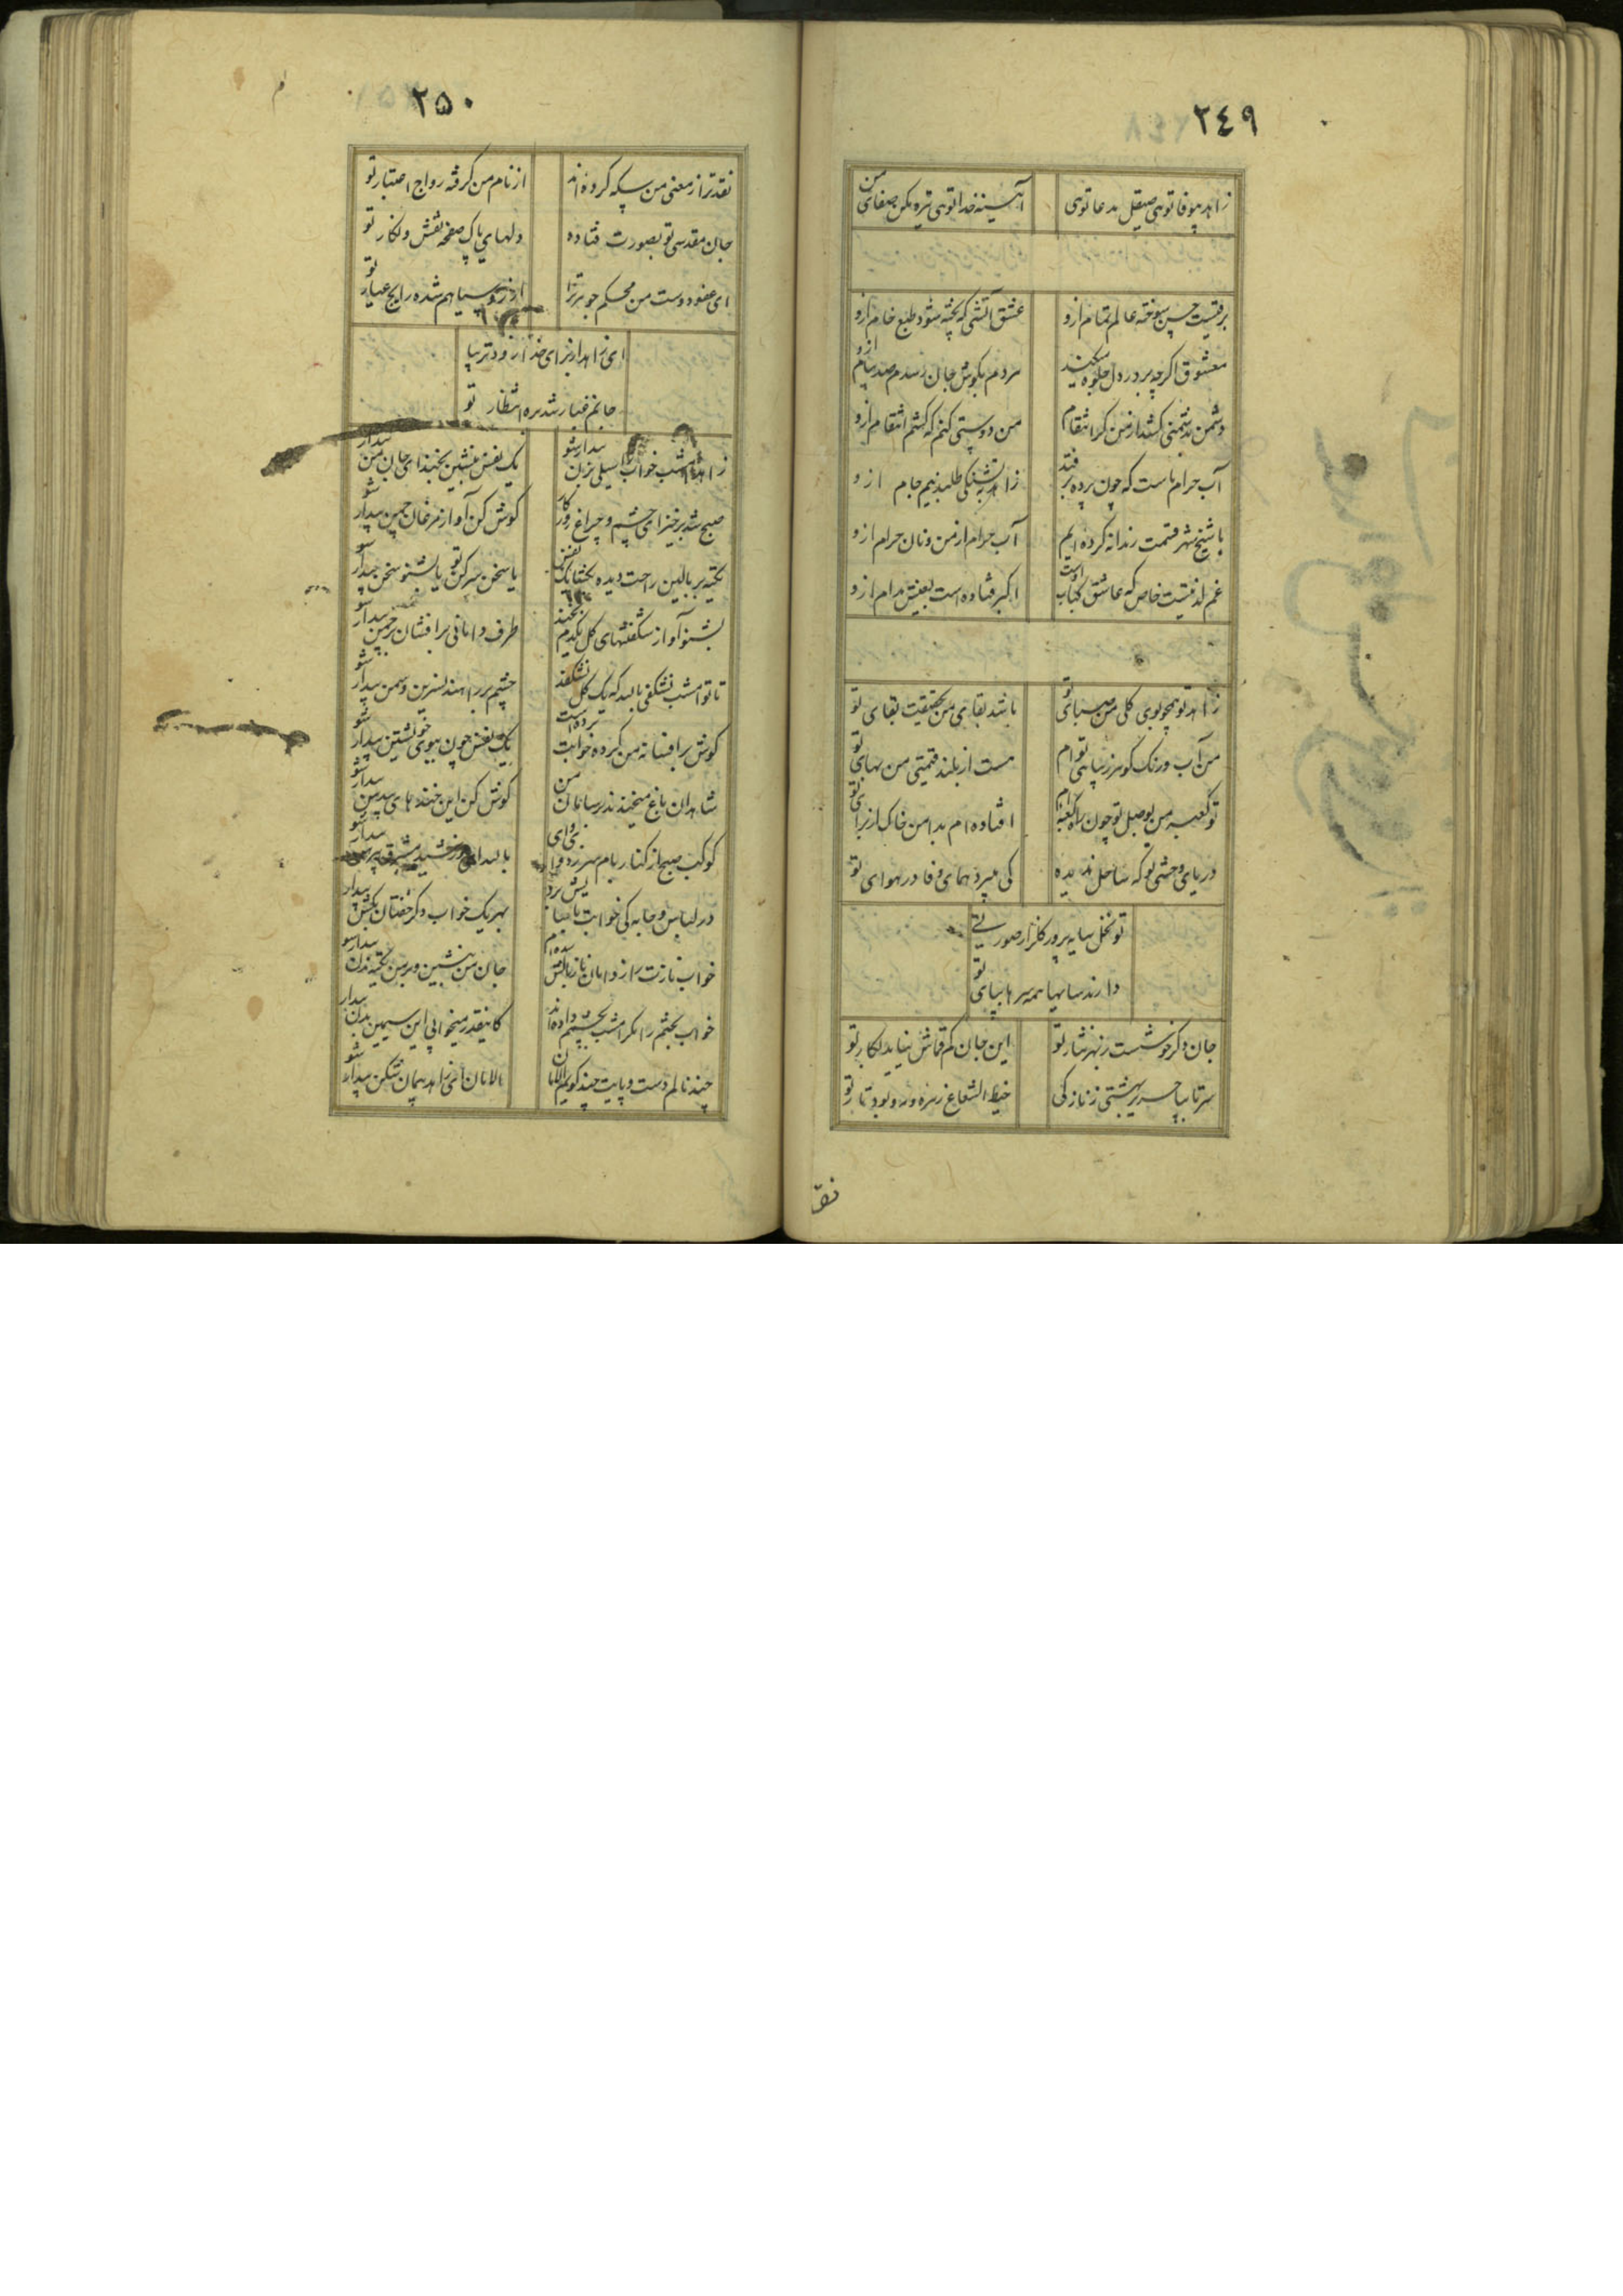 ۲۴۹
زاهد بیوفا توهی صیقل مدعا توهی آئینه خدا توهی تیره مکن صفای من
برقیست حسن سوخته عالم تمام ازو عشق آتشی که پخته شود طبع خام ازو
معشوق اگرچه بر در دل جلوه میکند هر دم بگوش جان رسدم صد پیام ازو
دشمن بدشمنی کشد از من گر انتقام من دوستی کنم که کشم انتقام ازو
آب حرام ماست که چون پرده بر فتد زاهد بتشنگی طلبد نیم جام ازو
با شیخ شهر قسمت رندانه کرده ایم آب حرام از من و نان حرام ازو
غم لذتیست خاص که عاشق کباب اوست
زاهد تو همچو بوی گلی من صبای تو باشد بقای من بحقیقت بقای تو
من آب و رنگ گوهر زیبای تو ام هست از بلند قیمتی من بهای تو
تو کعبه من بوصل تو چون راه کعبه ام افتاده ام بدامن خاک از برای تو
دریای وحشتی تو که ساحل ندیده کی میپرد همای وفا در هوای تو
تو نخل سایه پرور گلزار صورتی
دارند سایها همه سر بپای تو
جان دگر خوشست ز بهر نثار تو این جان کم قماش نیاید بکار تو
سر تا بپا حریر بهشتی ز نازکی خیط الشعاع زهره و مه بود تار تو
نقد
۲۵۰
نقد ترا ز معنی من سکه کرده اند از نام من گرفته رواج اعتبار تو
جان مقدسی تو بصورت فتاده دلهای پاک صفحه نقش و نگار تو
ای عفو دوست من محکم جوهر ترا از رو سیاهیم شده رایج عیار تو
ای زاهد از برای خدا زودتر بیا
جانم غبار شد بره انتظار تو
زاهد امشب خواب را سیلی بزن بیدار شو یک نفس بنشین بخند ای جان من بیدار شو
صبح شد برخیز ای چشم و چراغ روزگار گوش کن آواز مرغان چمن بیدار شو
تکیه بر بالین راحت دیده بگشا یک نفس یا سخن سر کن تو یا بشنو سخن بیدار شو
بشنو آواز شگفتنهای گل یکدم بخند طرف دامانی برافشان بر چمن بیدار شو
تا تو امشب نشکفی بالله که یک گل نشکفد چشم بر راهند نسرین و سمن بیدار شو
گوش بر افسانه من کرده خوابت برده است یک نفس چون بیوی خویشتن بیدار شو
شاهدان باغ میخندند رسامان من گوش کن این خنده های بیدهن بیدار شو
کوکب صبح از کنار بام سر زد وای وای
در لباس وجابه کی خوابت بهر یک خواب دگر خفتان بکش بیدار شو
خواب نازت را ز دامان ناز بالش جان من بنشین و بر من تکیه زن بیدار شو
خواب بختم را مگر امشب بچشمت داده اند کاینقدر میخوابی ای سیمین بدن بیدار شو
چند نالم دست و پایت چند گویم الامان الامان ای زاهد پیمان شکن بیدار شو